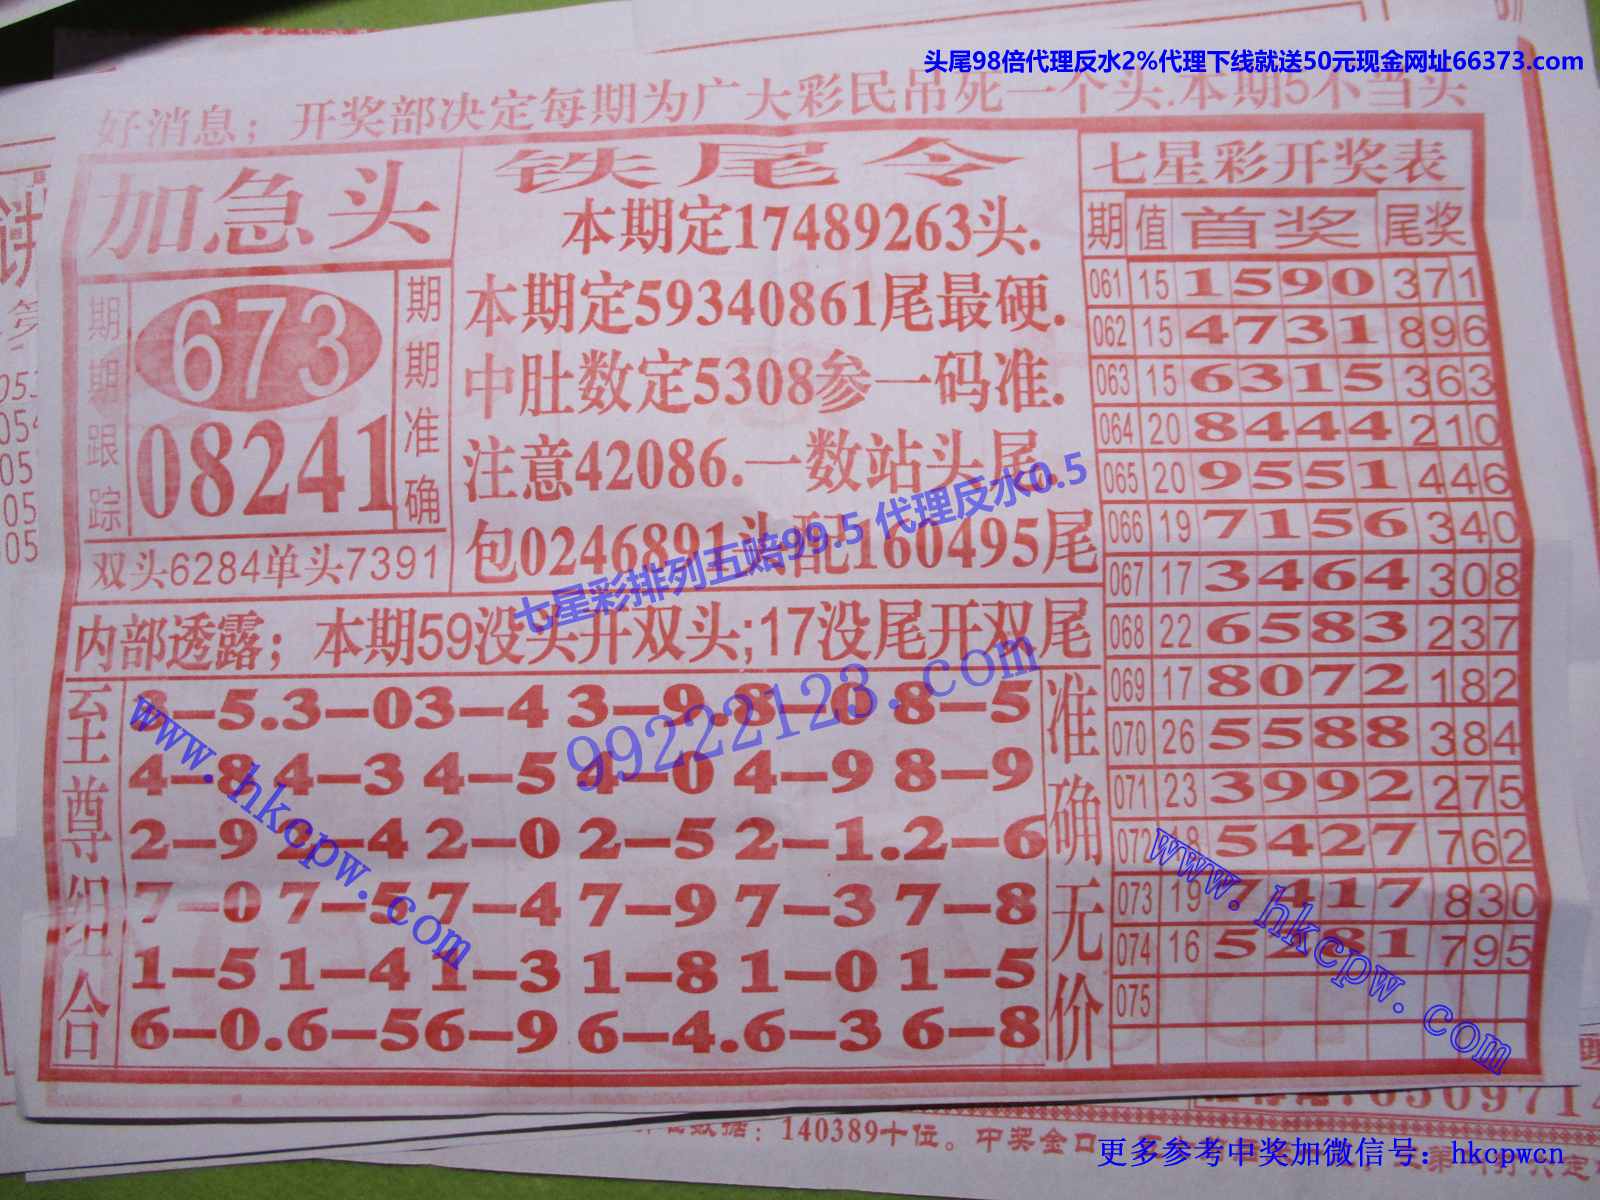 头尾98倍代理反水2%代理下线就送50元现金网址66373.com
好消息；开奖部决定每期为广大彩民吊死一个头.本期5不当头
加急头
期期跟踪
673
08241
期期准确
双头6284单头7391
铁尾令
本期定17489263头.
本期定59340861尾最硬.
中肚数定5308参一码准.
注意42086.一数站头尾.
包0246891头配160495尾
七星彩排列五赔99.5 代理反水0.5
内部透露；本期59没头开双头;17没尾开双尾
99222123.com
至尊组合
3-5.3-03-4 3-9.8-0 8-5
4-8 4-3 4-5 4-0 4-9 8-9
2-9 2-4 2-0 2-5 2-1.2-6
7-0 7-5 7-4 7-9 7-3 7-8
1-5 1-4 1-3 1-8 1-0 1-5
6-0.6-56-9 6-4.6-3 6-8
准确无价
www.hkcpw.com
七星彩开奖表
期 值 首奖 尾奖
061 15 1590 371
062 15 4731 896
063 15 6315 363
064 20 8444 210
065 20 9551 446
066 19 7156 340
067 17 3464 308
068 22 6583 237
069 17 8072 182
070 26 5588 384
071 23 3992 275
072 18 5427 762
073 19 7417 830
074 16 5281 795
075
www.hkcpw.com
140389十位。中奖金口
更多参考中奖加微信号：hkcpwcn